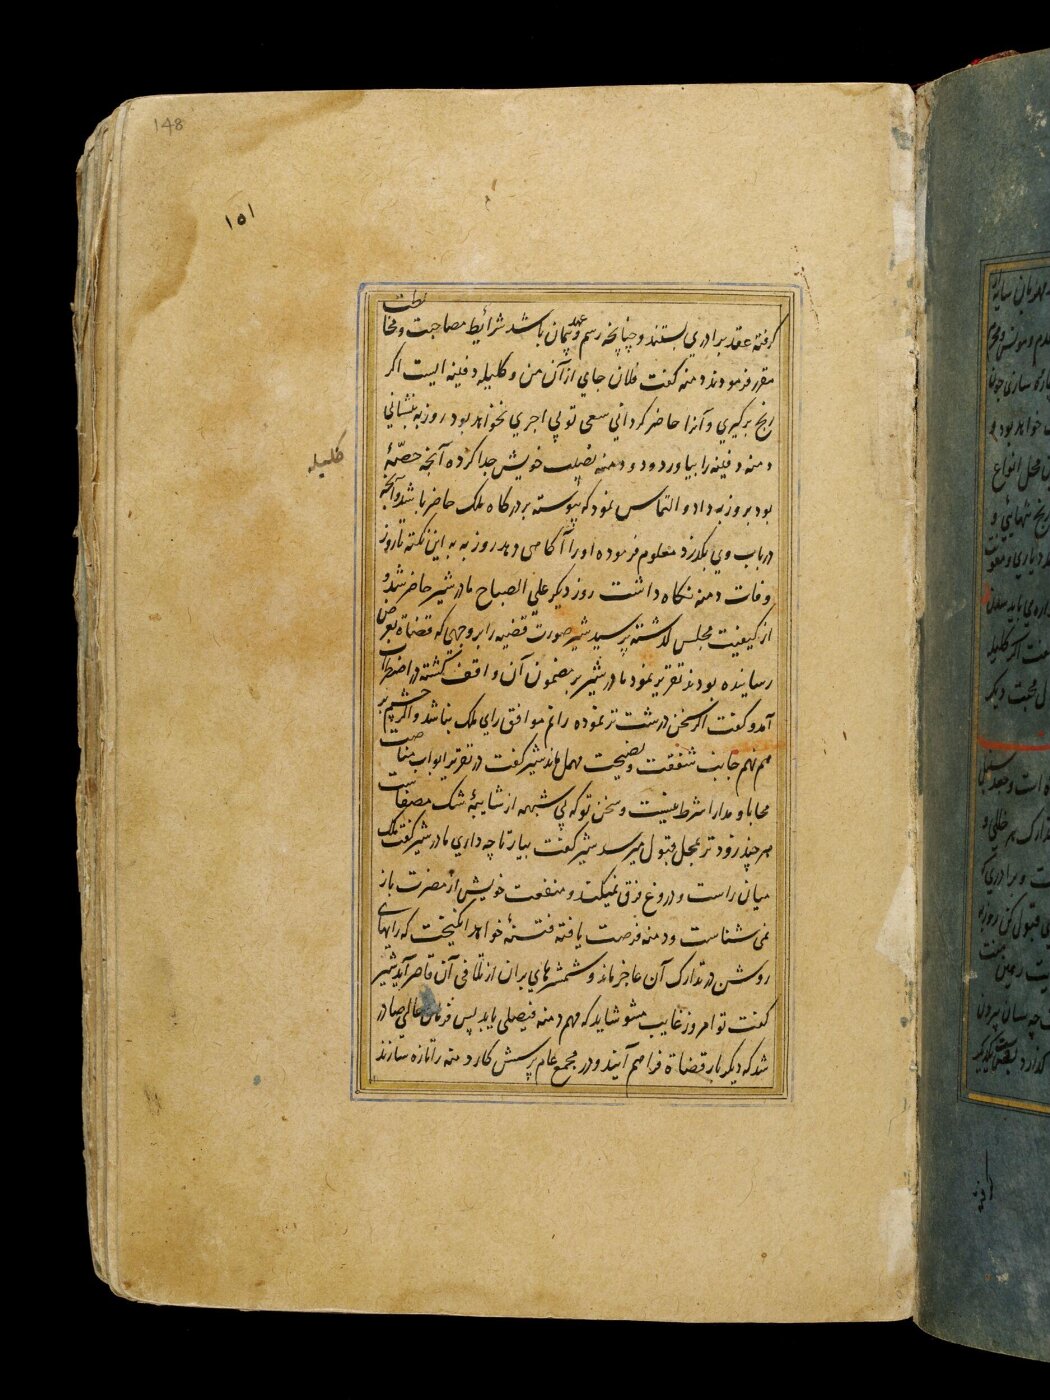 148
١٥١
گرفته عقد برادری بستند و چنانچه رسم عهد و پیمان باشد شرائط مصاحبت و مخالطت
مقرر فرمودند دمنه گفت فلان جای از آن من و کلیله دفینه ایست اگر
رنج برگیری و آنرا حاضر گردانی سعی تو بی اجری نخواهد بود روزبه بنشانی
دمنه دفینه را بیاورد و دمنه نصیب خویش جدا کرده آنچه حصّهٔ
کلیله
بود بروزبه داد و التماس نمود که پیوسته بر درگاه ملک حاضر باشد و آنچه
در باب وی بگذرد معلوم فرموده او را آگاهی دهد روزبه به این نکته تا روز
وفات دمنه نگاه داشت روز دیگر علی الصباح مادر شیر حاضر شد و
از کیفیت مجلس گذشته پرسید شیر صورت قضیه را بر وجهی که قضاة بعرض
رسانیده بودند تقریر نمود مادر شیر بر مضمون آن واقف گشته در اضطراب
آمد و گفت اگر سخن درشت تر نموده رانم موافق رای ملک نباشد و اگر چشم بر
هم نهم جانب شفقت و نصیحت مهمل ماند شیر گفت در تقریر ابواب مناصحت
محابا و مدارا شرط نیست و سخن تو که بی شبهه از شایبهٔ شک مصفاست
هر چند زودتر بمحل قبول میرسد شیر گفت بیار تا چه داری مادر شیر گفت ملک
میان راست و دروغ فرق نمیکند و منفعت خویش از مضرت باز
نمی شناسد و دمنه فرصت یافته فتنهٔ خواهد انگیخت که رایهای
روشن در تدارک آن عاجز ماند و شمشیرهای بران از تلافی آن قاصر آید شیر
گفت تو امروز غایب مشو شاید که مهم دمنه فیصلی یابد پس فرمان عالی صادر
شد که دیگر بار قضاة فراهم آیند و در مجمع عام پرسش کار دمنه را تازه سازند